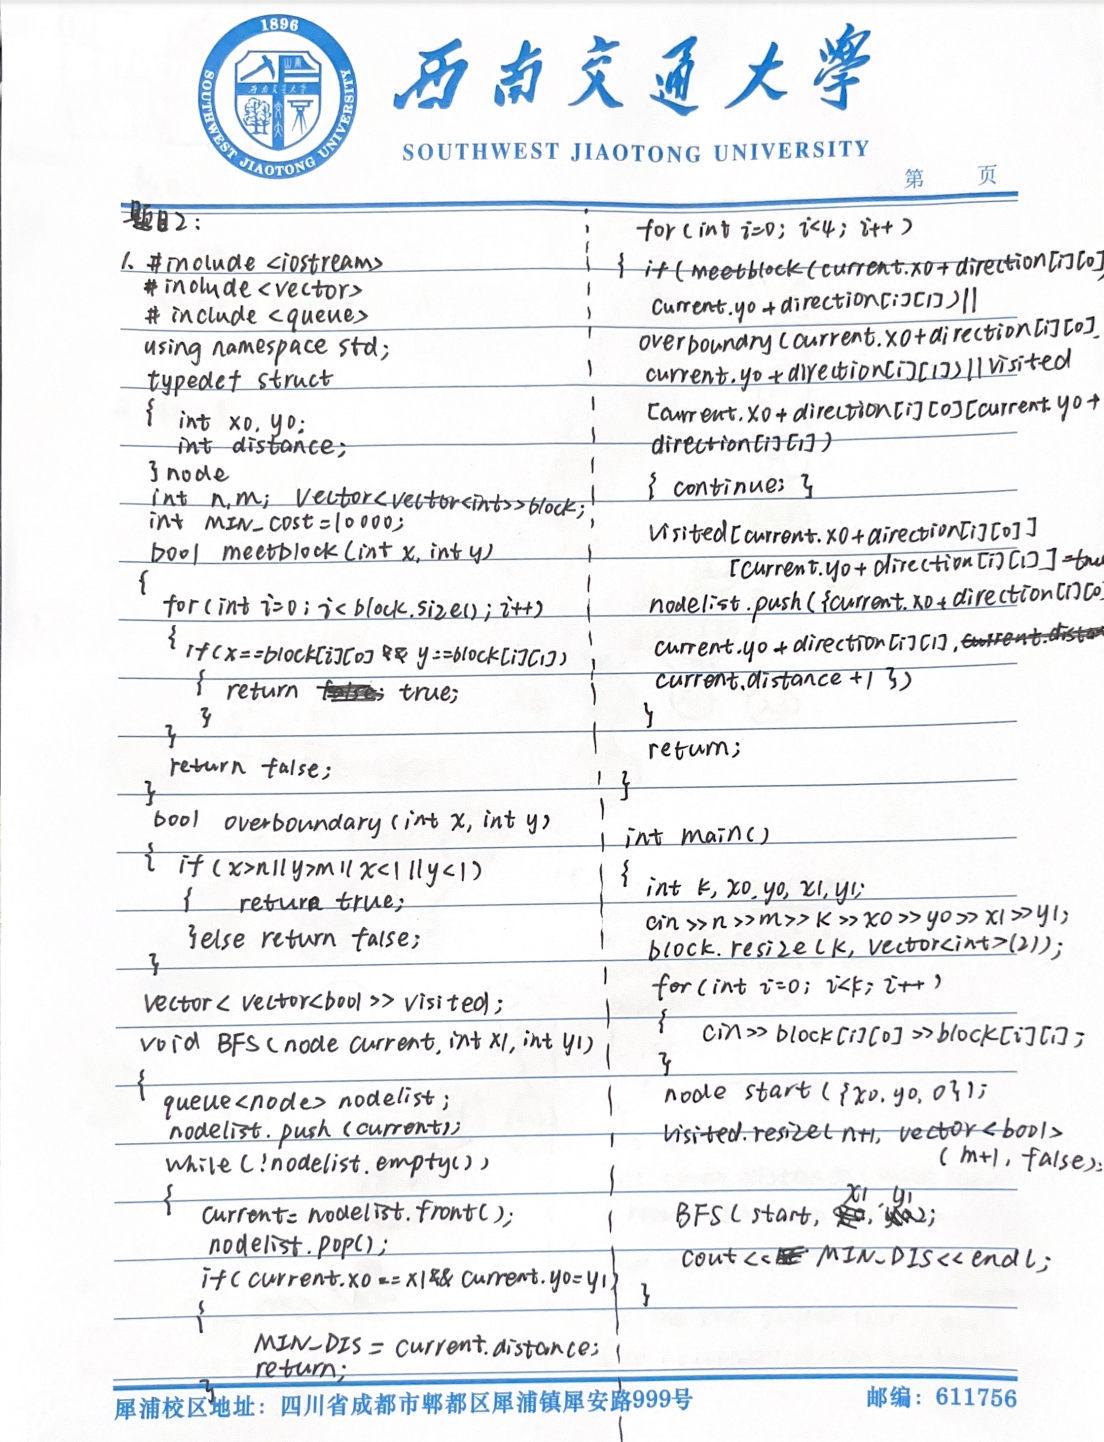 1896
SOUTHWEST JIAOTONG UNIVERSITY
西南交通大学
西南交通大學
SOUTHWEST JIAOTONG UNIVERSITY
第 页
题目2:
1. #include <iostream>
#include <vector>
# include <queue>
using namespace std;
typedef struct
{ int x0, y0;
int distance;
}node
int n,m; vector<vector<int>>block;
int MIN_COST=10000;
bool meetblock(int x, int y)
{
for(int i=0; i<block.size(); i++)
{ if(x==block[i][0] && y==block[i][1])
{ return true;
}
}
return false;
}
bool overboundary(int x, int y)
{ if(x>n||y>m||x<1||y<1)
{ return true;
}else return false;
}
vector< vector<bool>> visited;
void BFS(node current, int x1, int y1)
{
queue<node> nodelist;
nodelist.push(current);
while(!nodelist.empty())
{
current= nodelist.front();
nodelist.pop();
if(current.x0 == x1&& current.y0=y1)
{
MIN_DIS = current.distance;
return;
}
for(int i=0; i<4; i++)
{ if(meetblock(current.x0+direction[i][0]
current.y0+direction[i][1])||
overboundry(current.x0+direction[i][0],
current.y0+direction[i][1])||visited
[current.x0+direction[i][0][current.y0+
direction[i][1])
{ continue; }
visited[current.x0+direction[i][0]]
[current.y0+direction[i][1]]=true
nodelist.push({current.x0+direction[i][0]
current.y0+direction[i][1],
current.distance+1 })
}
return;
}
int main()
{ int k, x0, y0, x1, y1;
cin>>n>>m>>k>>x0>>y0>>x1>>y1;
block.resize(k, vector<int>(2));
for(int i=0; i<k; i++)
{ cin>> block[i][0]>>block[i][1];
}
node start({x0, y0, 0});
visited.resize( n+1, vector<bool>
(m+1, false);
BFS(start, x1, y1);
cout<< MIN_DIS<<endl;
}
犀浦校区地址：四川省成都市郫都区犀浦镇犀安路999号 邮编：611756